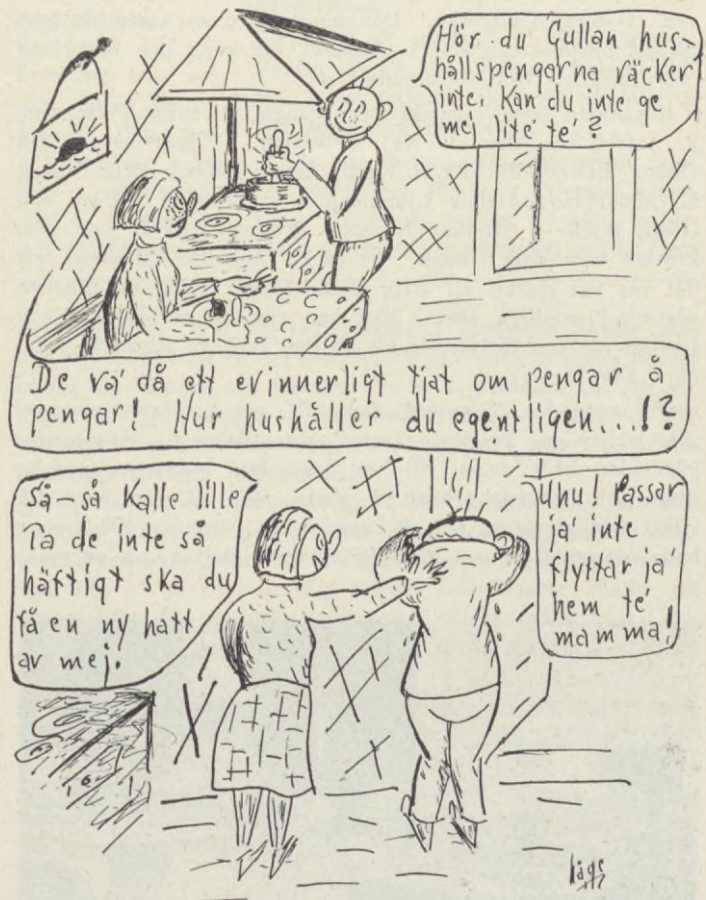 Hör du Gullan hus-
hållspengarna räcker
inte. Kan du inte ge
mej lite' te' ?
De va' då ett evinnerligt tjat om pengar å
pengar! Hur hushåller du egentligen...!?
Så - så Kalle lille
Ta de inte så
häftigt ska du
få en ny hatt
av mej.
Uhu! Passar
ja' inte
flyttar ja'
hem te'
mamma!